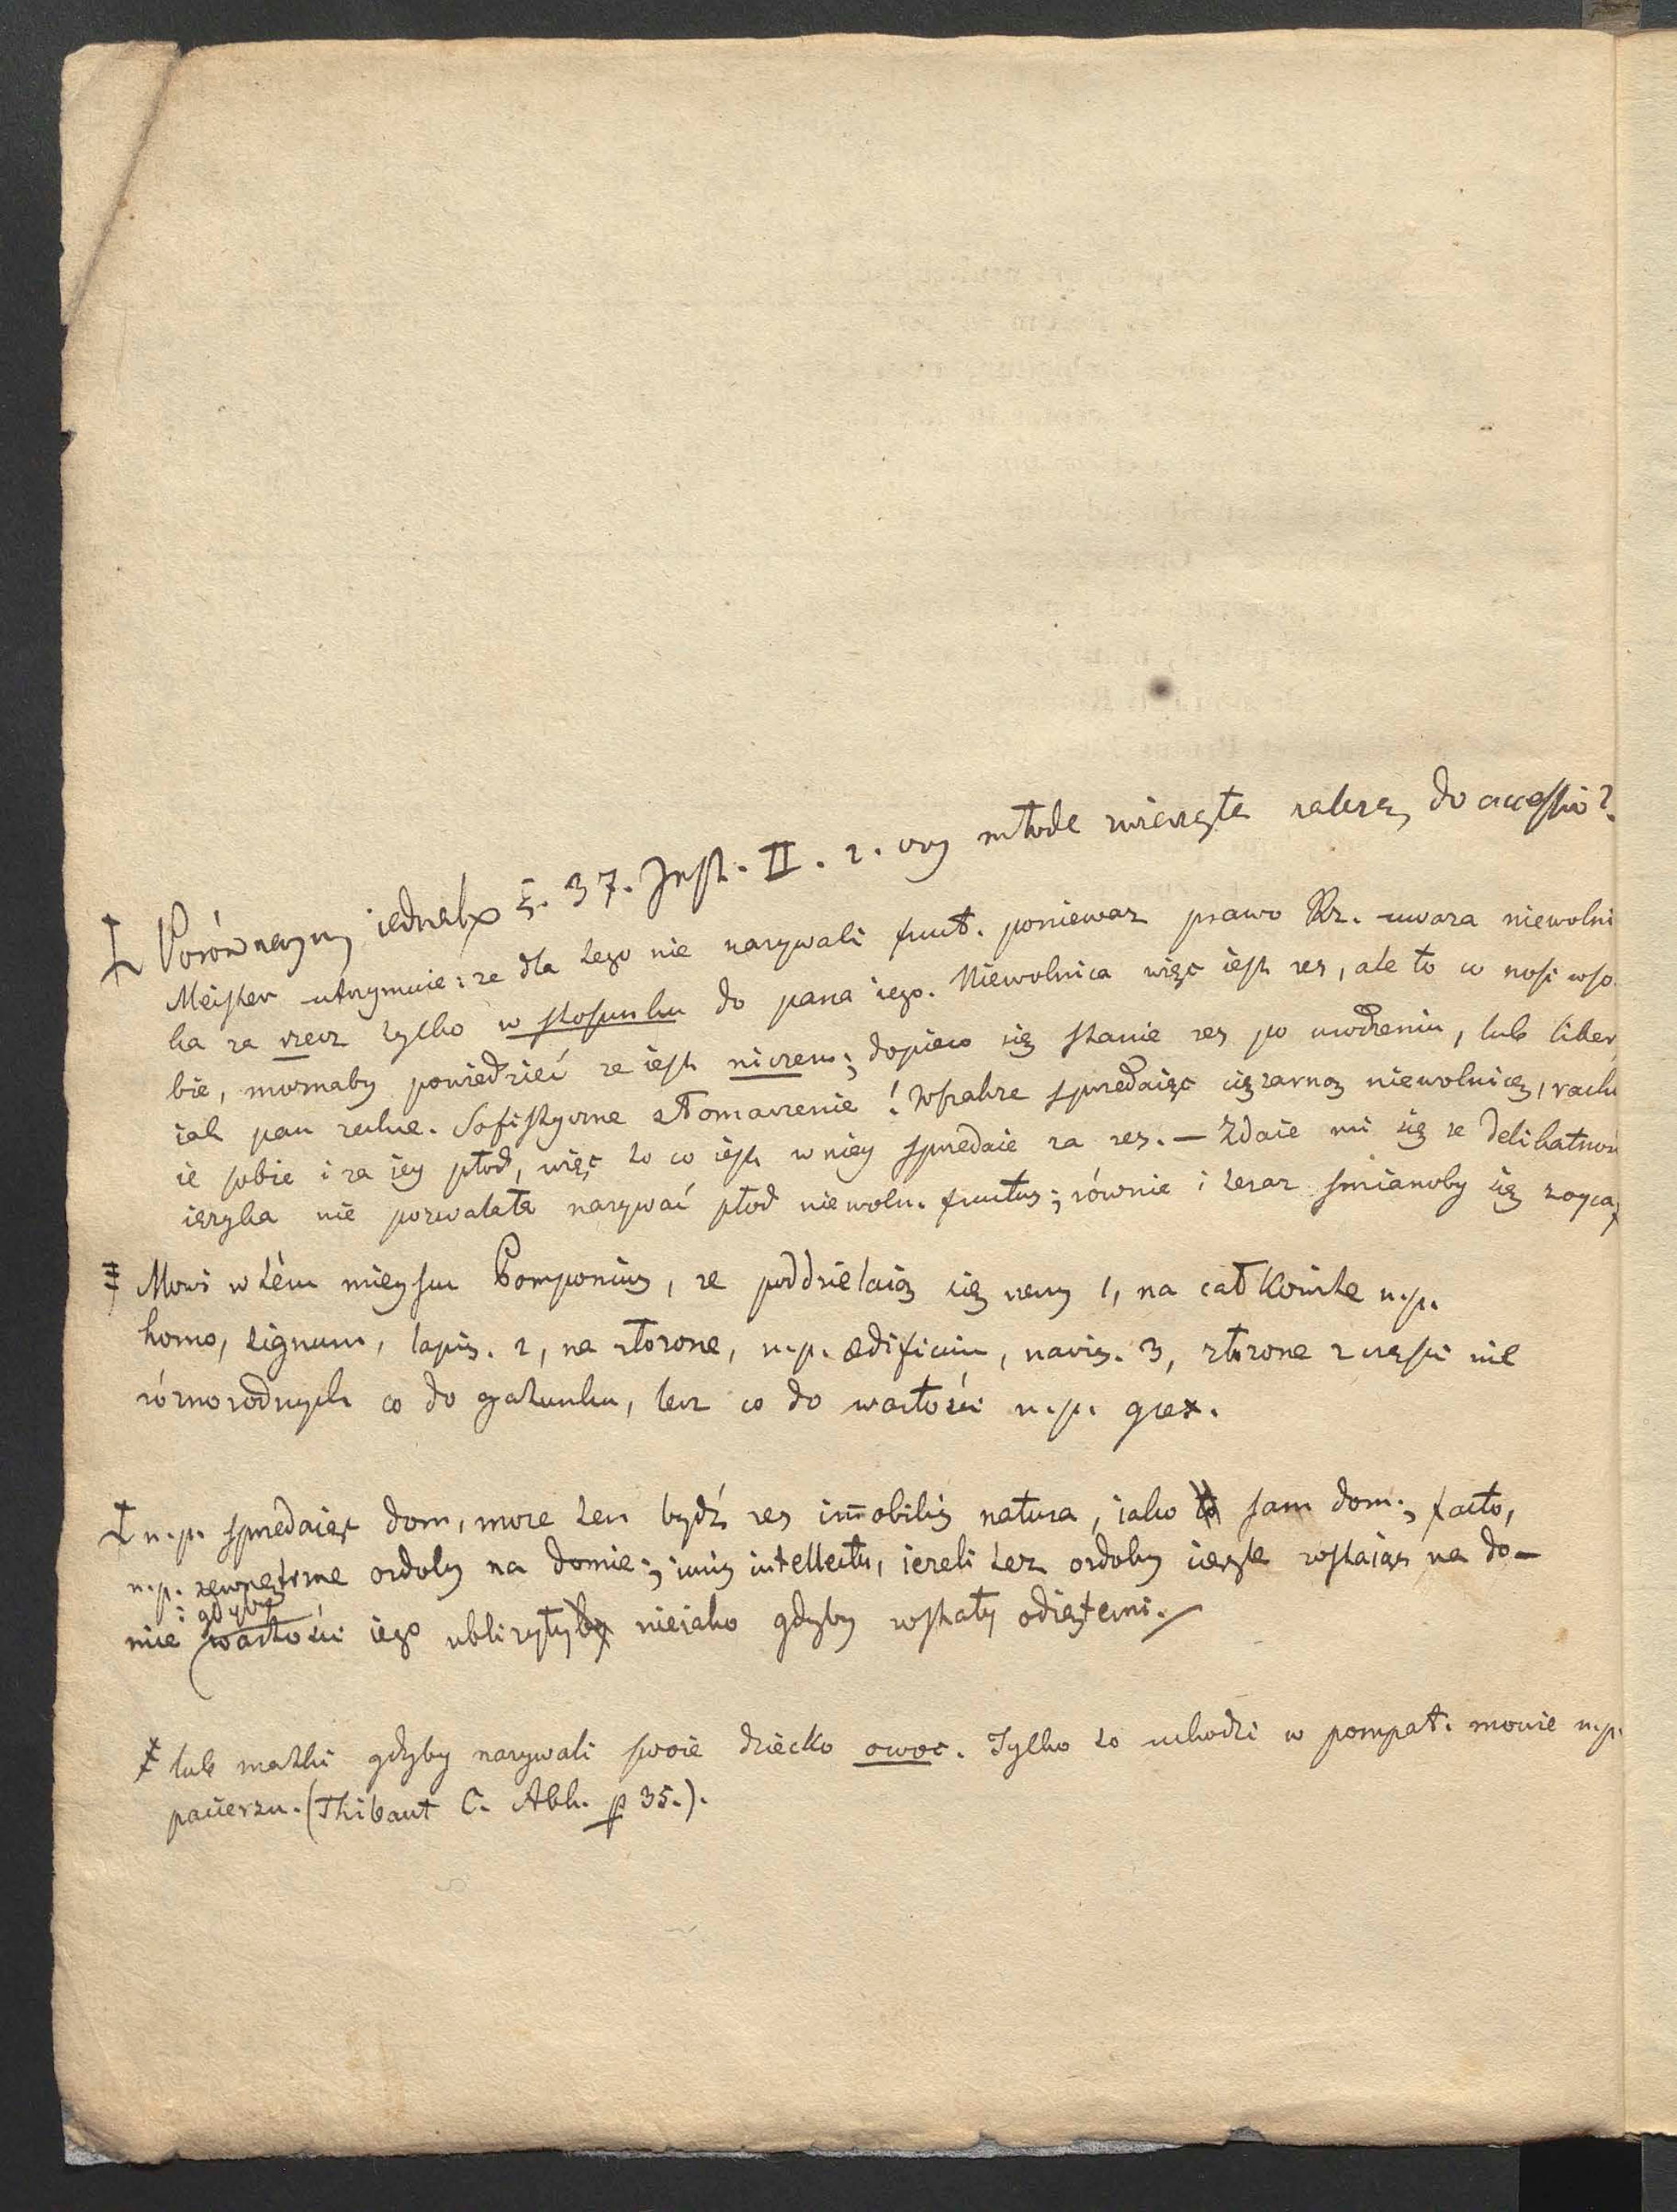 Ł Porównaymy iednak §. 37. Inst. II. 1. czy młode zwierzęta należą do accessio?
Meister utrzymuie: ze dla tego nie nazywali fruct. poniewaz prawo Rz. uwaza niewolni
ka za rzecz tylko w stosunku do pana iego. Niewolnica więc iest res, ale to co nosi w so-
bie, moznaby powiedzieć ze iest niczem; dopiero się stanie res po urodzeniu, lub liber,
iak pan zechce. Sofistyczne tłomaczenie! Wszakze sprzedaiąc ciężarną niewolnicę, rachu
ie sobie i za iey płod, więc to co iest w niey sprzedaie za res. — Zdaie mi się ze delikatność
ięzyka nie pozwalała nazywać płod niewoln. fructus; równie i teraz smianoby się z oyca,
‡ Mowi w tém mieyscu Pomponius, ze poddzielaią się rzeczy 1, na całkowite n.p.
homo, lignum, lapis. 2, na złozone, n.p. ædificium, navis. 3, złozone z części nie
róznorodnych co do gatunku, lecz co do wartości n.p. grex.
Ł n.p. sprzedaiąc dom, moze ten bydź res im̄obilis natura, iako to sam dom; facto,
n.p. zewnętrzne ozdoby na domie; iuris intellectu, iezeli też ozdoby ieszcze zostaią na do-
mie gdyby
wartości iego ubliżyłyby nieiako gdyby zostały odięтemi.
‡ lub matki gdyby nazywali swoie dziecko owoc. Tylko to uchodzi w pompat. mowie n.p.
pacierzu. (Thibaut C. Abh. p 35.).